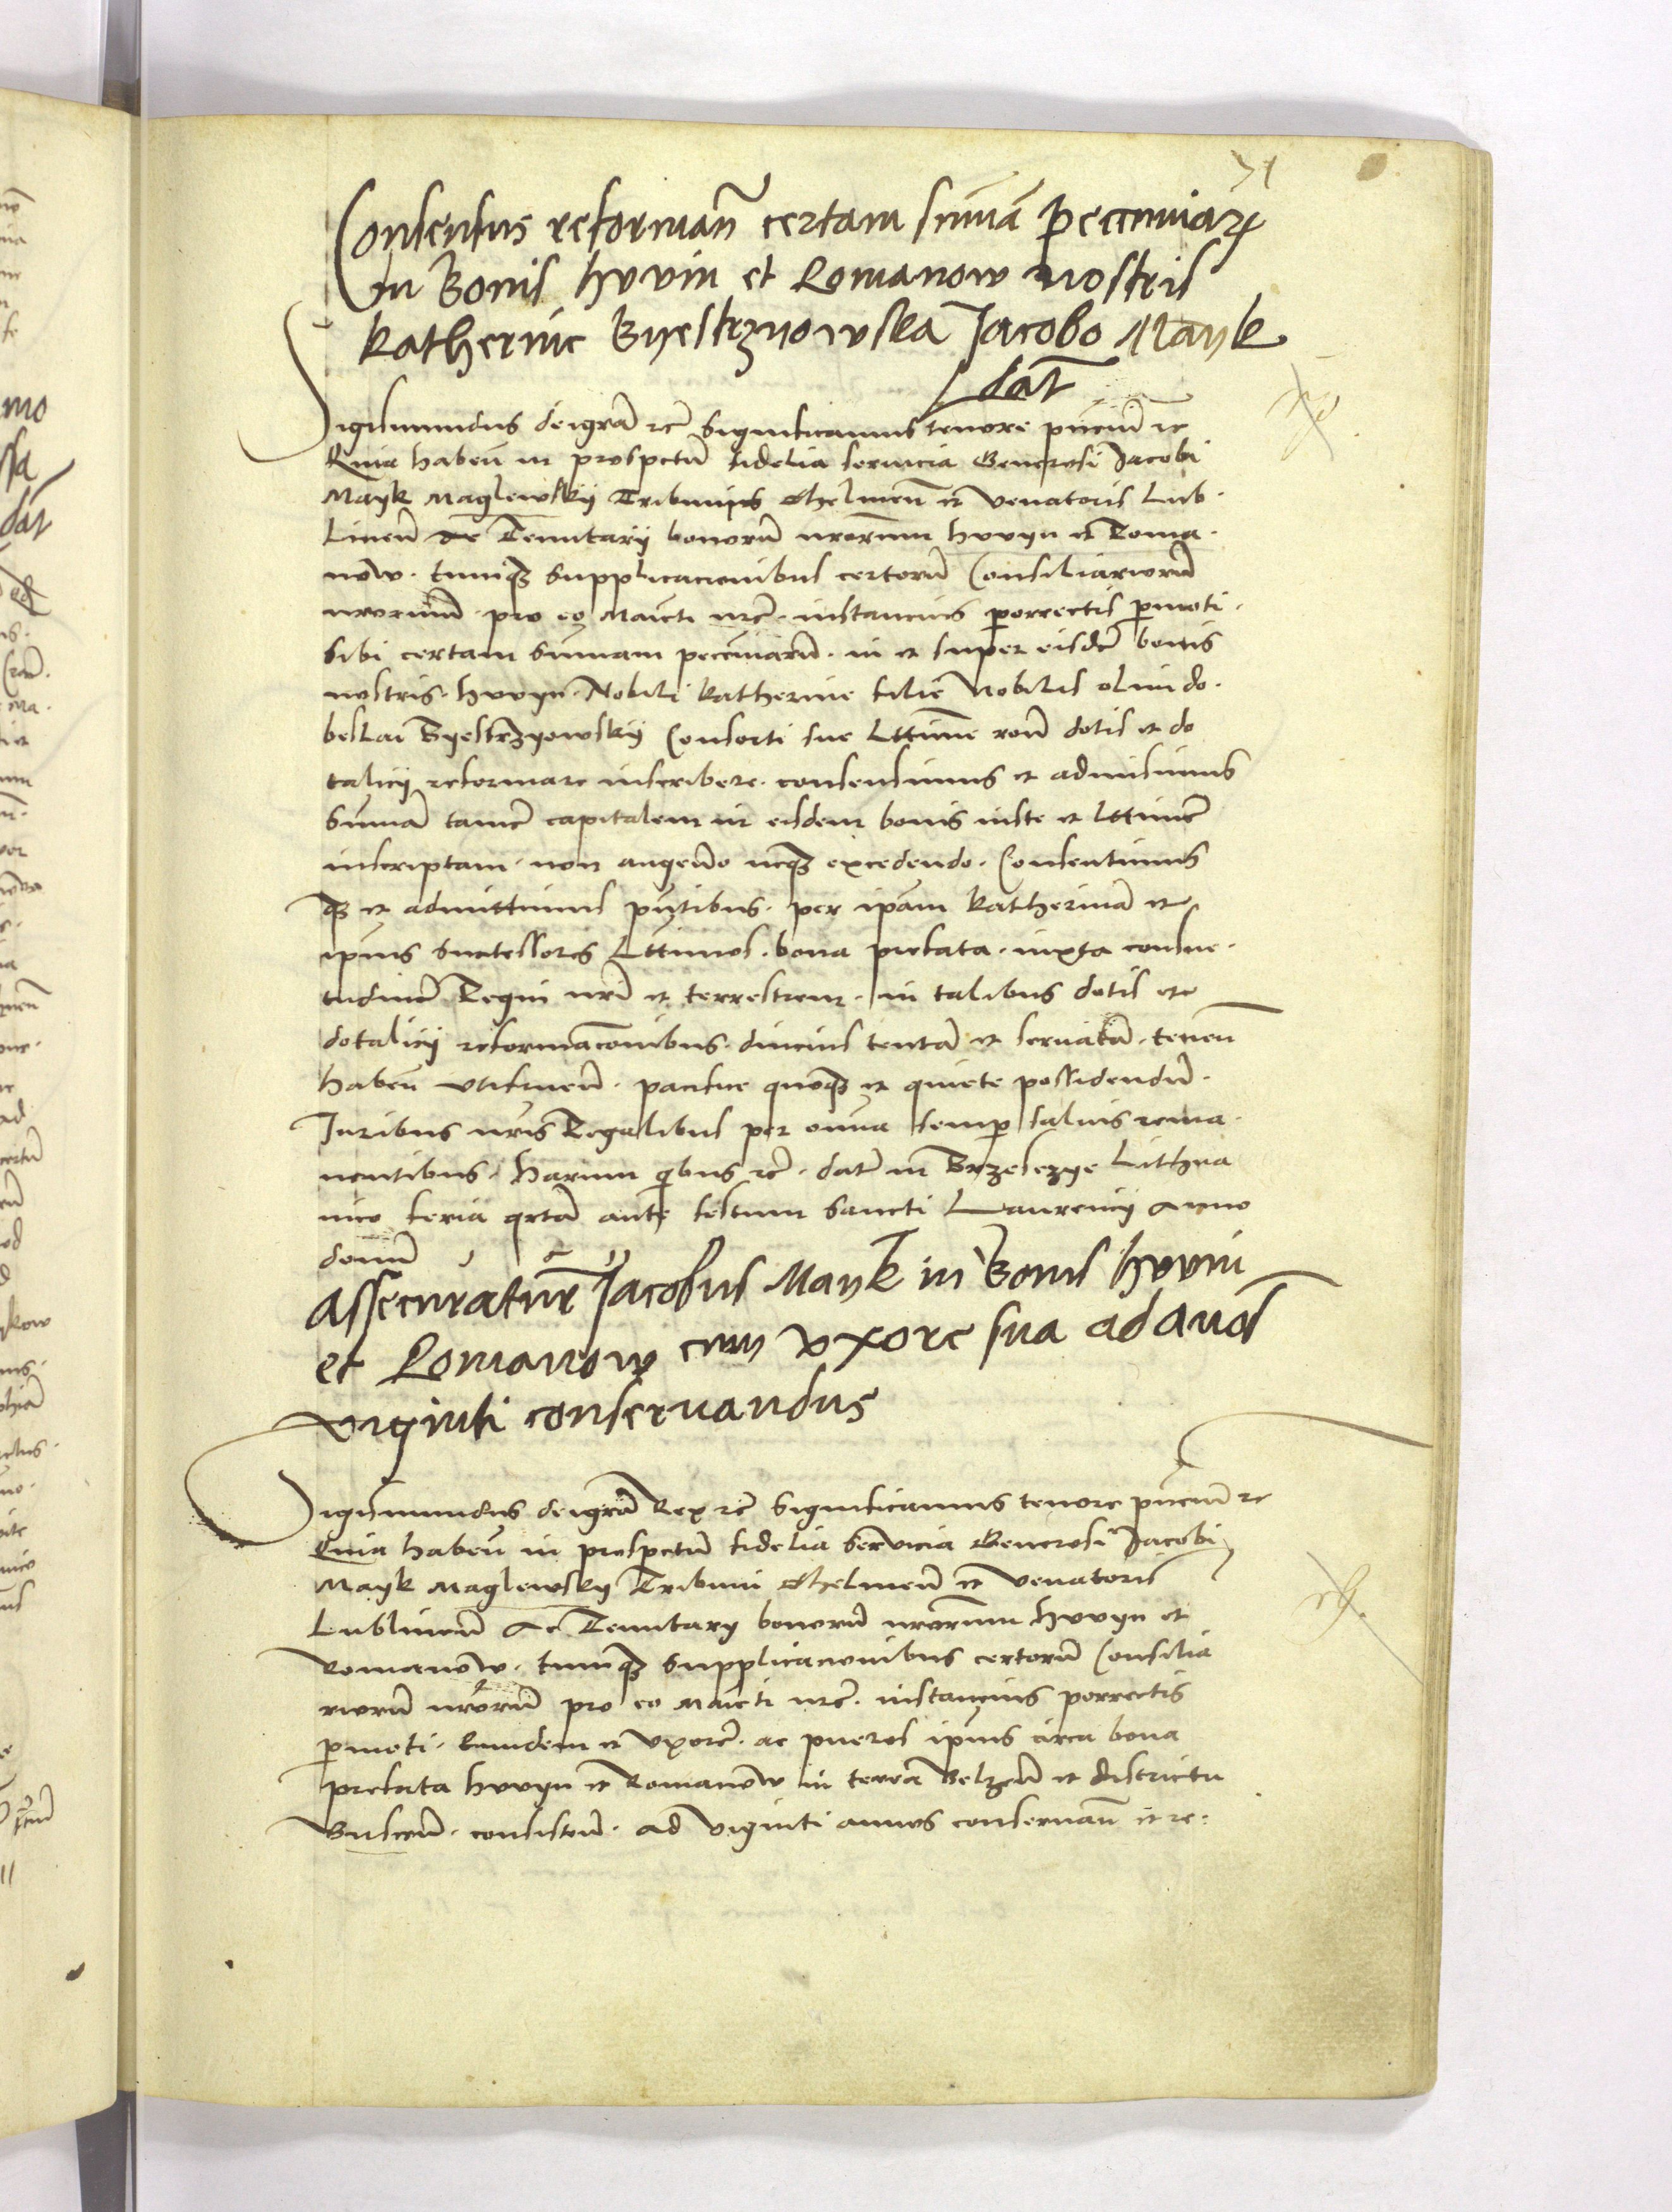 71
Consensus reformañ certam sumã pecuniaꝝ
In bonis hvvin et Romanow nostris
Katherine Byestrzyowska Jacobo Mayk
dat̃
Sigismundus dei grã rc̃ Significamus tenore p̃nciũ rc
Quia habeñ in prospectũ fidelia servicia Generosi Jacobi
Mayk Maglewskij Tribunis Chelmeñ et Venatoris Lub.
lineñ ac Tenutarij bonorũ nr̃orum hvvyn et Roma.
now. tumqꝫ supplicacionibus certorũ Consiliariorũ
nr̃orum. pro eo Maiẽti nr̃e. instancius porrectis ꝑmoti.
sibi certam summam pecuniarũ. in et super eisdẽ bonis
nostris. hvvyn. Nobili Katherine filie Nobilis olim do.
beslai Byestrzyowskij Consorti sue Lttime roñe dotis et do
talicij reformare inscribere. consensimus et admisimus
summã tamẽ capitalem in eisdem bonis iuste et Lttime
inscriptam. non augendo neqꝫ excedendo. Consentimus
qꝫ et admittimus p̃ntibus. per ip̃am Katherinã et
ip̃ius successores Lttimos. bona prefata. iuxta consue.
tudinẽ Regni nr̃i et terrestrem. in talibus dotis et
dotalicij reformac̃onibus. diucius tentã et servatã. teneñ
habeñ utifrueñ. pacifice quoqꝫ et quiete possidendũ.
Juribus nr̃is Regalibus per omnia semper salvis rema.
nentibus. Harum q̃bus rc̃. datũ in Brzesczye Lithua
nico feria qrtã ante festum Sancti Laurencij Anno
domĩ
Assecuratur Jacobus Mayk in Bonis hvvin
et Romanow cum uxore sua ad años
viginti conservandus
Sigismundus dei grã Rex rc̃ Significamus tenore p̃nciũ rc
Quia habeñ in prospectũ fidelia servicia Generosi Jacobi
Mayk Maglewsky Tribuni Chelmeñ et Venatoris
Lublineñ Ac Tenutarij bonorũ nr̃orum hvvyn et
Romanow. tumqꝫ supplicacionibus certorũ Consilia
riorũ nr̃orũ pro eo Maiẽti nr̃e. instancius porrectis
ꝑmoti. Eundem et uxorẽ. ac pueros ip̃ius circa bona
prefata hvvyn et Romanow in terra Belzeñ et districtu
Busceñ. consisteñ. ad viginti annos conservañ et re.